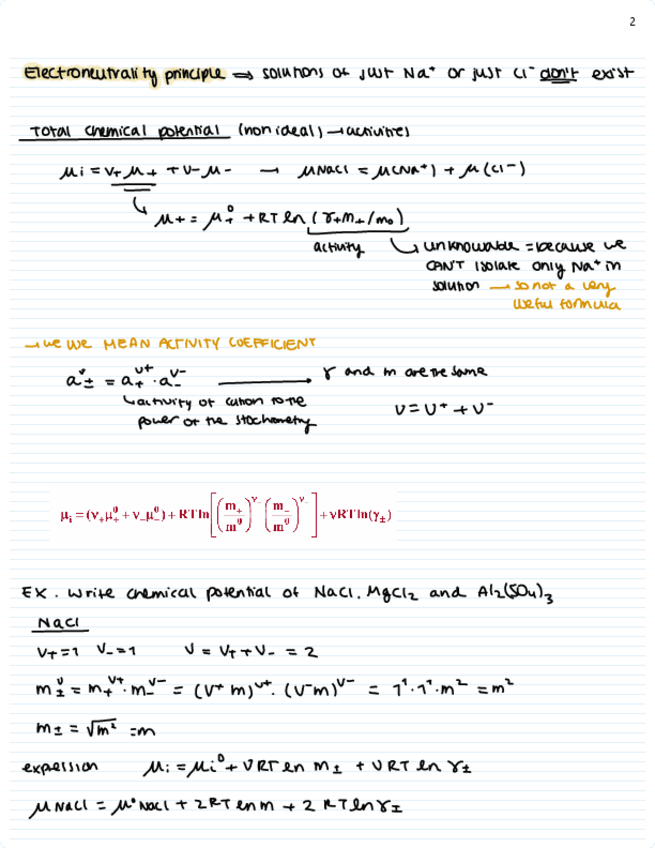 2
Electroneutrality principle ⇒ solutions of just Na⁺ or just Cl⁻ don't exist
Total chemical potential (nonideal) → activities
μi = ν+ μ+ + ν- μ- → μNaCl = μ(Na⁺) + μ(Cl⁻)
μ+ = μ+⁰ + RT ln (γ+m+/m₀)
activity
unknowable = because we
CAN'T isolate only Na⁺ in
solution → so not a very
useful formula
→ we use MEAN ACTIVITY COEFFICIENT
a±^ν = a+^ν+ · a-^ν- → γ and m are the same
↳ activity of cation to the
power of the stochometry
ν = ν⁺ + ν⁻
μi = (ν+μ+⁰ + ν-μ-⁰) + RT ln[(m+/m⁰)^ν+ (m-/m⁰)^ν-] + νRT ln(γ±)
EX. Write chemical potential of NaCl, MgCl₂ and Al₂(SO₄)₃
NaCl
ν+ = 1 ν- = 1 ν = ν+ + ν- = 2
m±^ν = m+^ν+ · m-^ν- = (ν⁺ m)^ν+ · (ν⁻m)^ν- = 1¹ · 1¹ · m² = m²
m± = √m² = m
μi = μi⁰ + νRT ln m± + νRT ln γ±
μNaCl = μ⁰NaCl + 2RT ln m + 2 RT ln γ±